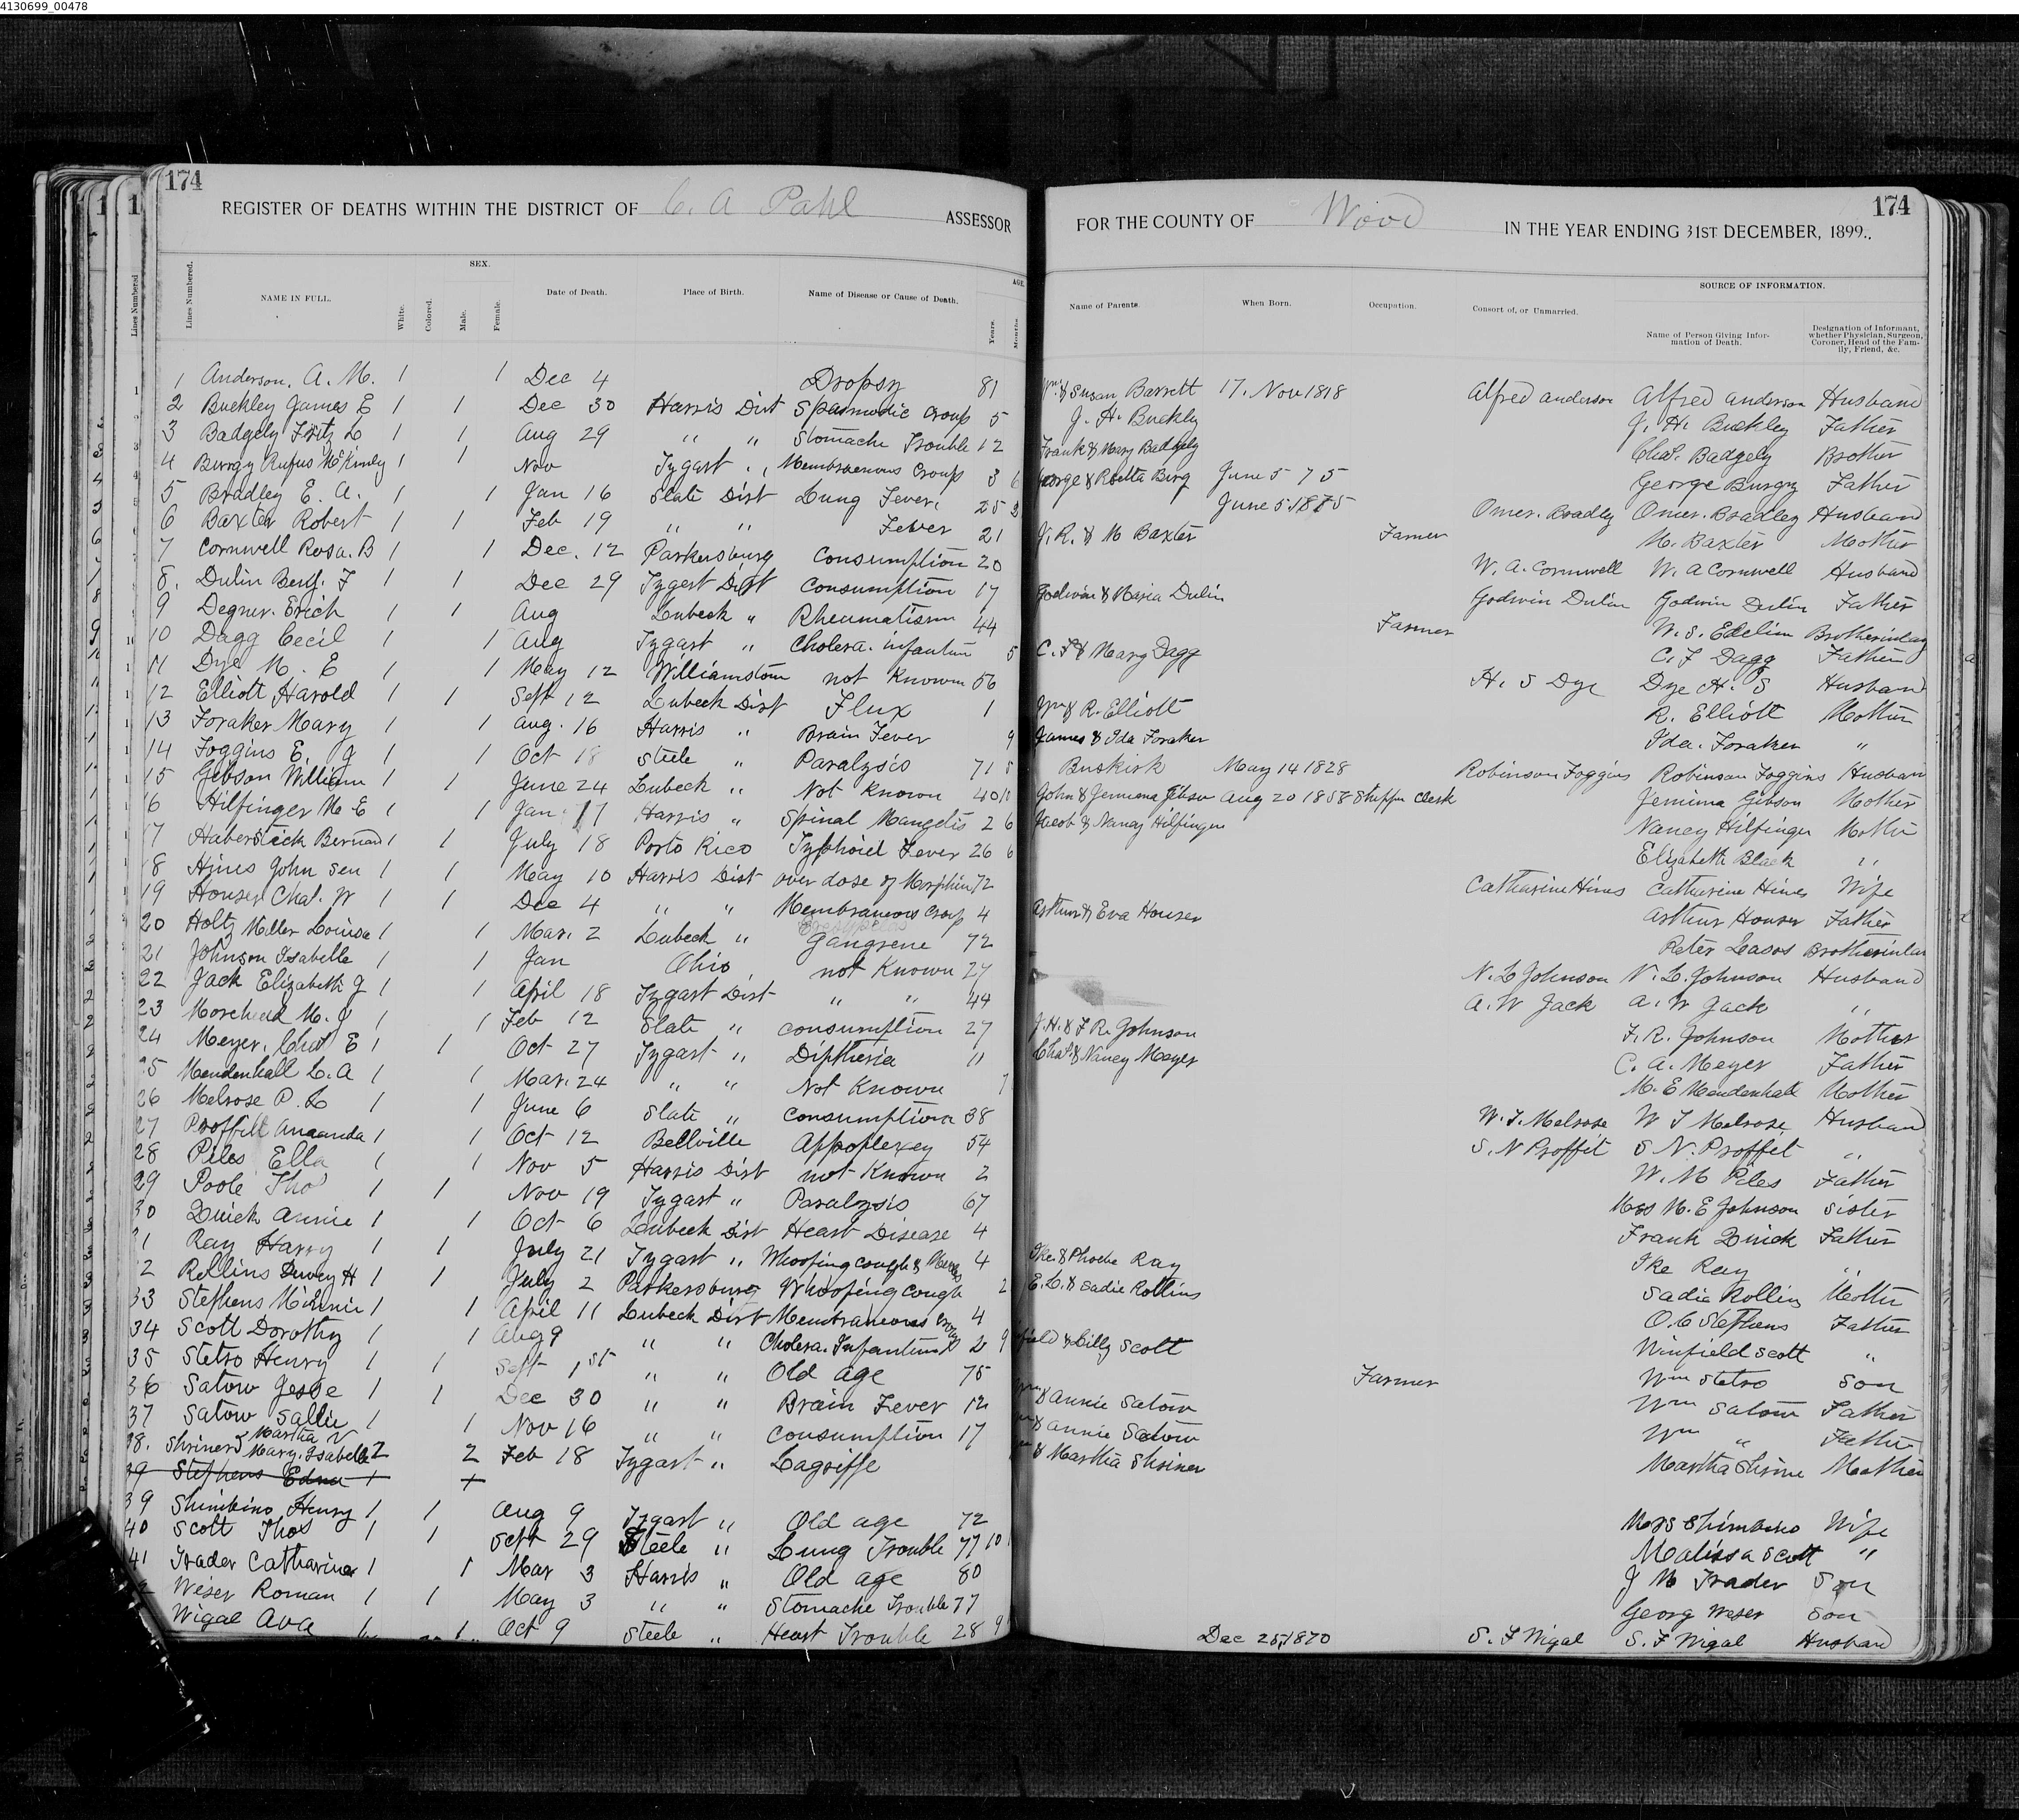 4130699_00478
174
REGISTER OF DEATHS WITHIN THE DISTRICT OF C. A Pahl ASSESSOR FOR THE COUNTY OF Wood IN THE YEAR ENDING 31ST DECEMBER, 1899..
174
Lines Numbered. NAME IN FULL. White. Colored. SEX. Male. Female. Date of Death. Place of Birth. Name of Disease or Cause of Death. AGE Years. Months Name of Parents When Born. Occupation. Consort of, or Unmarried. SOURCE OF INFORMATION. Name of Person Giving Information of Death. Designation of Informant, whether Physician, Surgeon, Coroner, Head of the Family, Friend, &c.
1 Anderson. A. M. 1 1 Dec 4 Dropsy 81 Wm & Susan Barrett 17. Nov 1818 Alfred anderson Alfred anderson Husband
2 Buckley James E 1 1 Dec 30 Harris Dist Spasmodic Croup 5 J. H. Buckly J. H. Buckley Father
3 Badgely Fritz L 1 1 Aug 29 " " Stomache Trouble 12 Frank & Mary Badgely Chas. Badgely Brother
4 Burgy Rufus McKinly 1 1 Nov Tygart " Membraenous Croup 3 6 George & Rosetta Burg June 5 75 George Burgy Father
5 Bradley E. A. 1 1 Jan 16 Slate Dist Lung Fever 25 3 June 5. 1875 Omer. Bradley Omer. Bradley Husband
6 Baxter Robert 1 1 Feb 19 " " Fever 21 J. R. & M Baxter Farmer M. Baxter Mother
7 Cornwell Rosa. B 1 1 Dec. 12 Parkersburg Consumption 20 W. A. Cornwell W. A Cornwell Husband
8. Dulin Benj. F 1 1 Dec 29 Tygert Dist Consumption 17 Godwin & Maria Dulin Godwin Dulin Godwin Dulin Father
9 Degner. Erich 1 1 Aug Lubeck " Rheumatism 44 Farmer W. S. Edelin Brotherinlaw
10 Dagg Cecil 1 1 Aug Tygart " Cholera. infantum 5 C. F & Mary Dagg C. F Dagg Father
11 Dye M. E 1 1 May 12 Williamstown not Known 56 H. S Dye Dye H. S Husband
12 Elliott Harold 1 1 Sept 12 Lubeck Dist Flux 1 Wm & R. Elliott R. Elliott Mother
13 Foraker Mary 1 1 Aug. 16 Harris " Brain Fever 9 James & Ida Foraker Ida. Foraker "
14 Foggins E. J 1 1 Oct 18 Steele " Paralysis 71 5 Buskirk May 14 1828 Robinson Foggins Robinson Foggins Husban
15 Gibson William 1 1 June 24 Lubeck " Not Known 40 10 John & Jemima Gibson Aug 20 1858 Shippin Clerk Jemima Gibson Mother
16 Hilfinger M. E 1 1 Jan 17 Harris " Spinal Mangetis 2 6 Jacob & Nancy Hilfinger Nancy Hilfinger Mother
17 Haberstick Bernard 1 1 July 18 Porto Rico Typhoid Fever 26 6 Elizabeth Black "
18 Hines John Sen 1 1 May 10 Harris Dist over dose of Morphin 72 Catharine Hines Catharine Hines Wife
19 Houser Chas. W 1 1 Dec 4 " " Membraneous Croup 4 Arthur & Eva Houser Arthur Houser Father
20 Holtz Miller Louisa 1 1 Mar. 2 Lubeck " Gangrene 72 Peter Leasos Brotherinlaw
21 Johnson Isabelle 1 1 Jan Ohio not Known 27 N. L Johnson N. L. Johnson Husband
22 Jack Elizabeth J 1 1 April 18 Tygart Dist " " 44 A. W Jack A. W Jack "
23 Morehead M. J 1 1 Feb 12 Slate " Consumption 27 J. H. & F R. Johnson F. R. Johnson Mother
24 Meyer. Chas E 1 1 Oct 27 Tygart " Diptheria 11 Chas. & Nancy Meyer C. A. Meyer Father
25 Mendenhall L. A 1 1 Mar. 24 " " Not Known 7 M. E Mendenhall Mother
26 Melrose P. L 1 1 June 6 Slate " Consumption 38 W. T. Melrose W T Melrose Husband
27 Proffitt Amanda 1 1 Oct 12 Bellville Apploplexey 54 S. N Proffit S N. Proffet "
28 Piles Ella 1 1 Nov 5 Harris Dist not Known 2 W. M Piles Father
29 Poole Thos 1 1 Nov 19 Tygart " Paralysis 67 Mrs M. E Johnson Sister
30 Quick Annie 1 1 Oct 6 Lubeck Dist Heart Disease 4 Frank Quick Father
31 Ray Harry 1 1 July 21 Tygart " Whoofing cough & Measles 4 Ike & Phoebe Ray Ike Ray "
32 Rollins Dewey H 1 1 July 2 Parkersburg Whoofing Cough 2 E. L. & Sadie Rollins Sadie Rollins Mother
33 Stephens Minnie 1 1 April 11 Lubeck Dist Membraneous Croup 4 O. C Stephens Father
34 Scott Dorothy 1 1 Aug 9 " " Cholera. Infantum 2 9 field & Lilly Scott Winfield Scott "
35 Stetso Henry 1 1 Sept 1st " " Old age 75 Farmer Wm Stetso Son
36 Satow Jesse 1 1 Dec 30 " " Brain Fever 12 Wm & Annie Satow Wm Satow Father
37 Satow Sallie 1 1 Nov 16 " " Consumption 17 Wm & Annie Satow Wm " Father
38. Shriner Martha V Mary. Isabelle 2 2 Feb 18 Tygart " Lagriffe & Martha Shriner Martha Shrine Mother
39 Stephens Edna 1 +
39 Shimbino Henry 1 1 Aug 9 Tygart " Old age 72 Mrs Shimbino Wife
40 Scott Thos 1 1 Sept 29 Steele " Lung Trouble 77 10 Malissa Scott "
41 Trader Catharine 1 1 Mar 3 Harris " Old age 80 J M Trader Son
Weser Roman 1 1 May 3 " " Stomache Trouble 77 Georg Weser Son
Wigal Ava 1 Oct 9 Steele " Heart Trouble 28 9 Dec 25, 1870 S. F Wigal S. F Wigal Husband